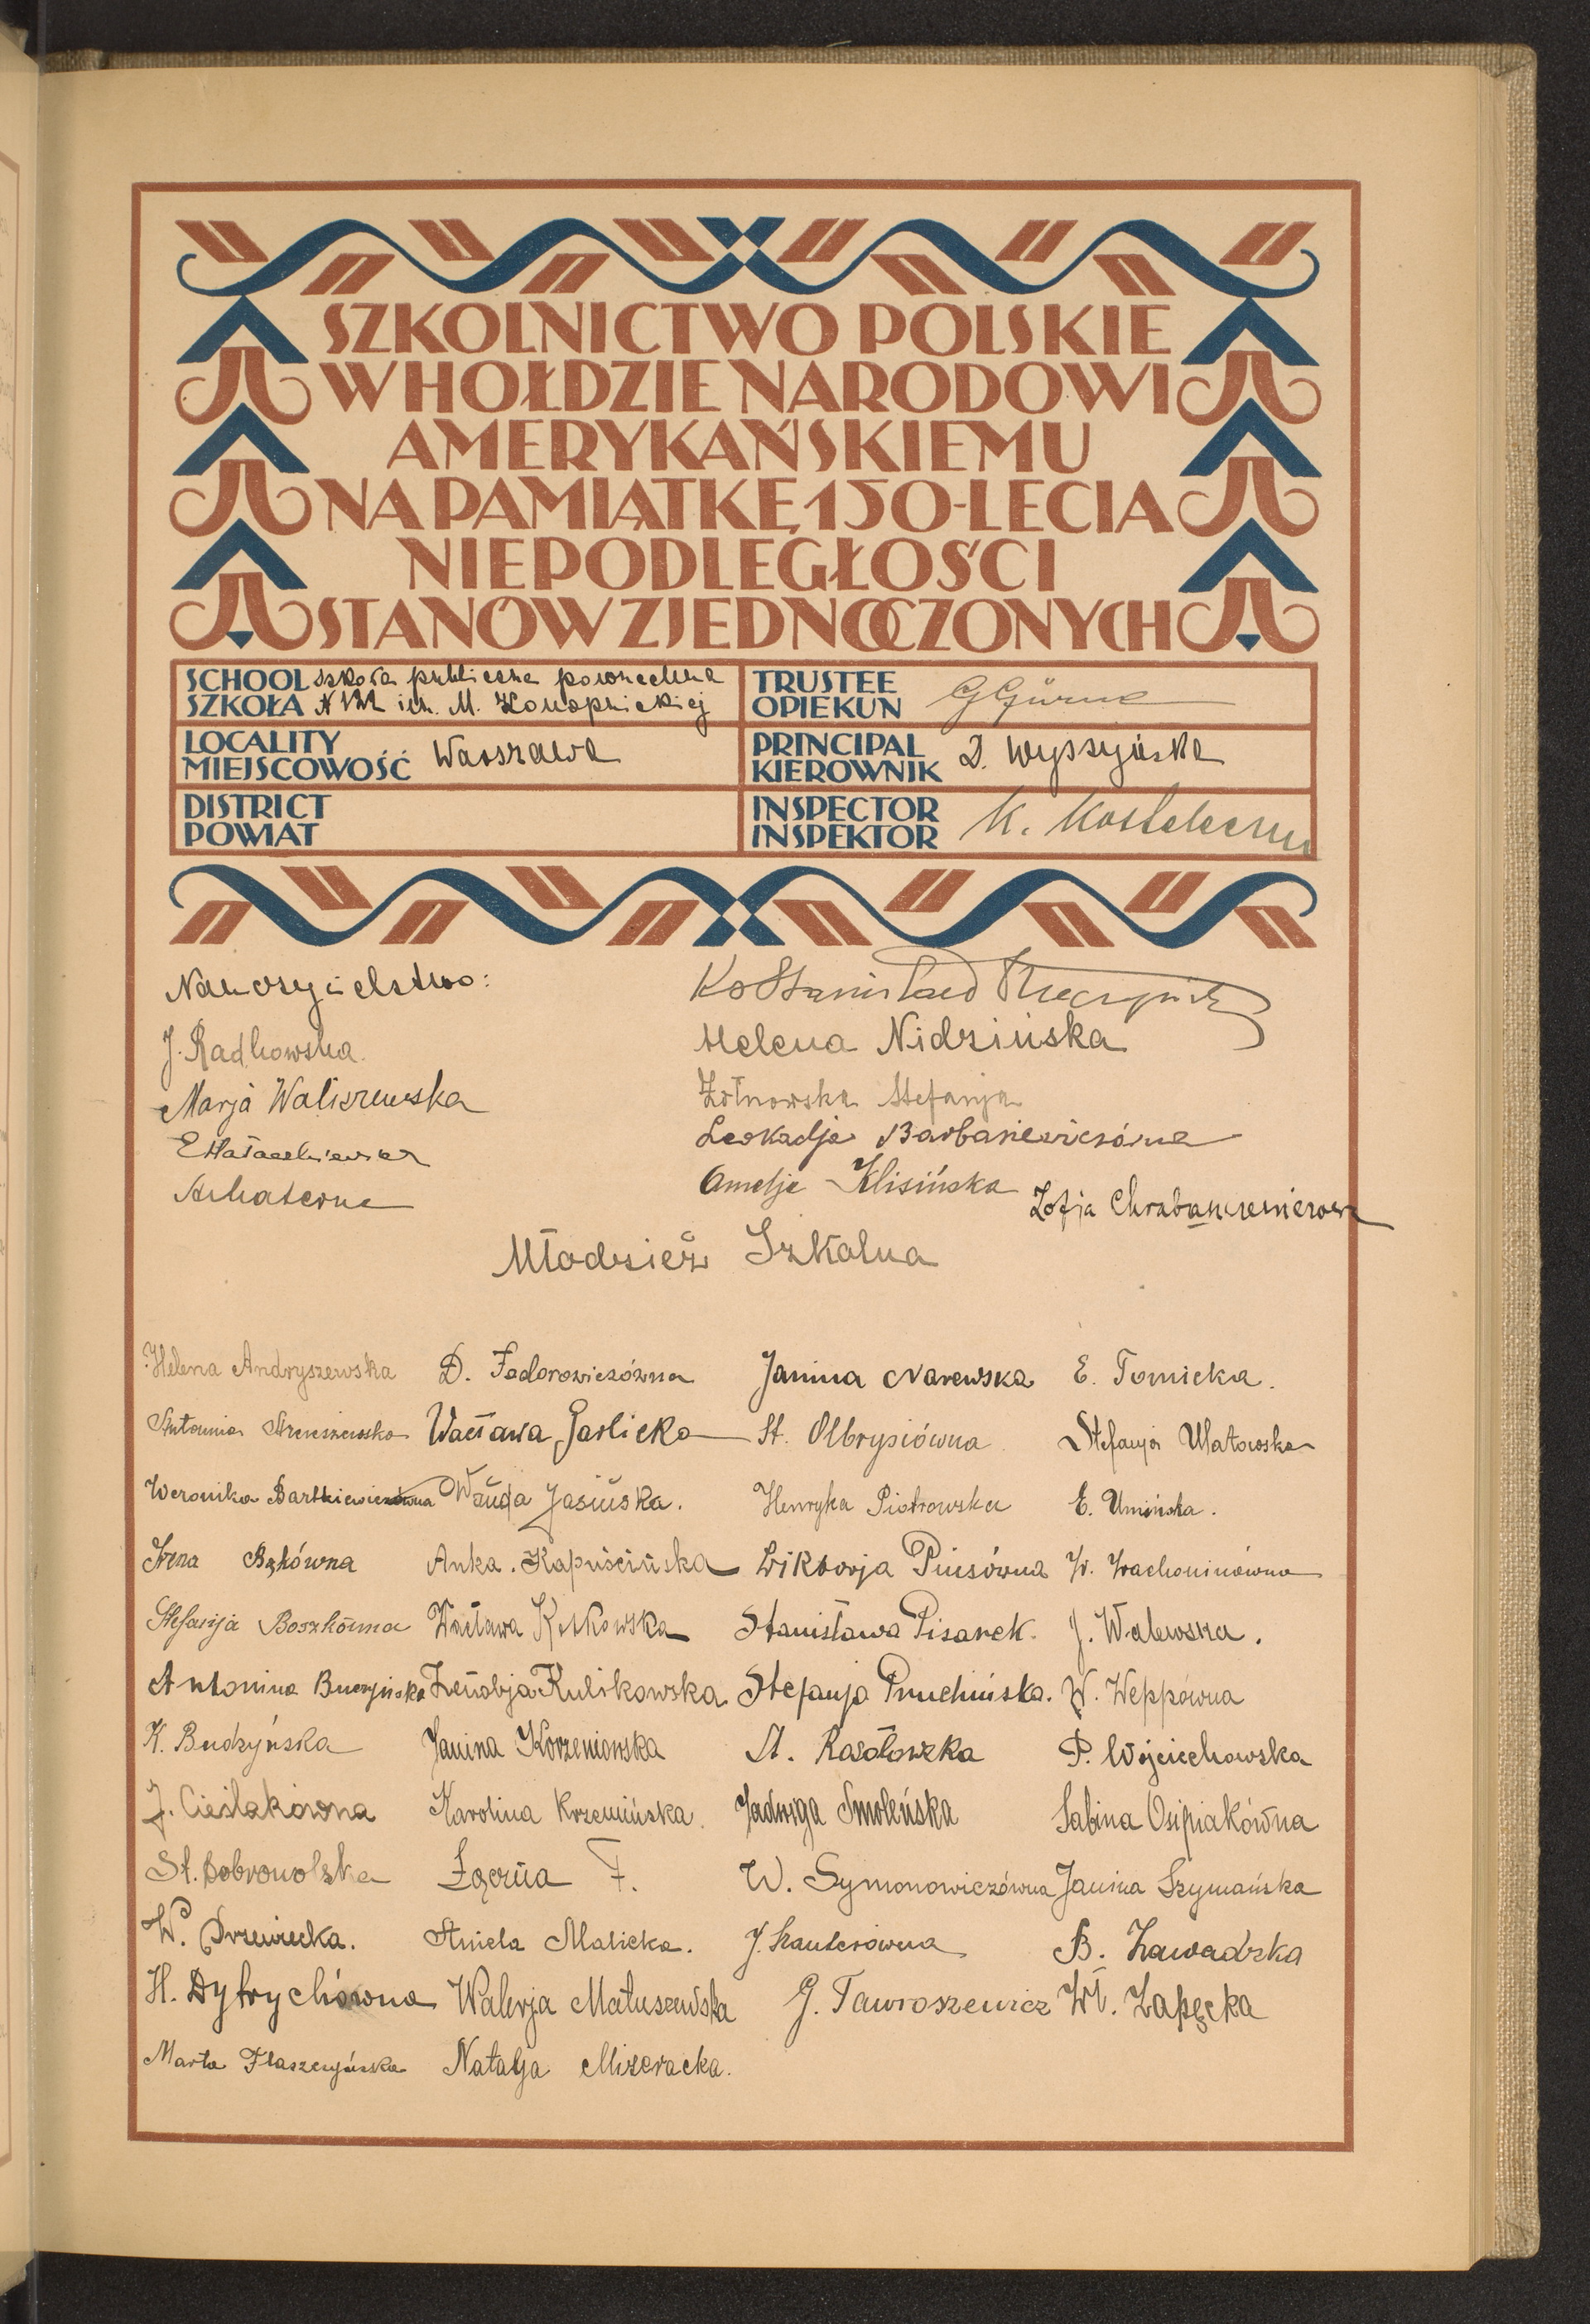 SZKOLNICTWO POLSKIE
W HOŁDZIE NARODOWI
AMERYKAŃSKIEMU
NA PAMIĄTKĘ 150-LECIA
NIEPODLEGŁOŚCI
STANÓW ZJEDNOCZONYCH
SCHOOL szkoła publiczna powszechna
SZKOŁA im. M. Konopnickiej
LOCALITY
MIEJSCOWOŚĆ Warszawa
DISTRICT
POWIAT
TRUSTEE
OPIEKUN
PRINCIPAL
KIEROWNIK D. Wyszyńska
INSPECTOR
INSPEKTOR K.
Nauczycielstwo:
J. Radkowska.
Marja Waliszewska
Ks Stanisław
Helena Nidzińska
Żółnowska Stefanja
Leokadja Barbasiewiczówna
Amelja Klisińska
Zofja
Młodzież Szkolna
Helena Andryszewska
D. Fedorowiczówna
Janina Narewska
E. Tomicka.
Antonina
Wacława Garlicka
St. Olbrysiówna
Stefanja Ułatowska
Weronika Bartkiewiczówna
Wanda Jasińska.
Henryka Piotrowska
E. Umińska.
Irena Bąkówna
Anka. Kapuścińska
Wiktorja Piusówna
W. Wachoninówna
Stefanja Boszkówna
Wacława Kotkowska
Stanisława Pisarek.
J. Walewska.
Antonina Buczyńska
Zenobja Kulikowska
Stefanja Pruchińska.
W. Weppówna
K. Budzyńska
Janina Korzeniowska
St. Rosołowska
P. Wojciechowska
J. Cieślakówna
Karolina Krzemińska.
Jadwiga Smoleńska
Sabina Osipiakówna
St. Dobrowolska
Łączna F.
W. Symonowiczówna
Janina Szymańska
W. Drzewiecka.
Aniela Malicka.
J. Szauterówna
B. Zawadzka
H. Dytrychówna
Walerja Matuszewska
G. Tawroszewicz
Wł. Zapęcka
Marta Flaszczyńska
Natalja Mizeracka.